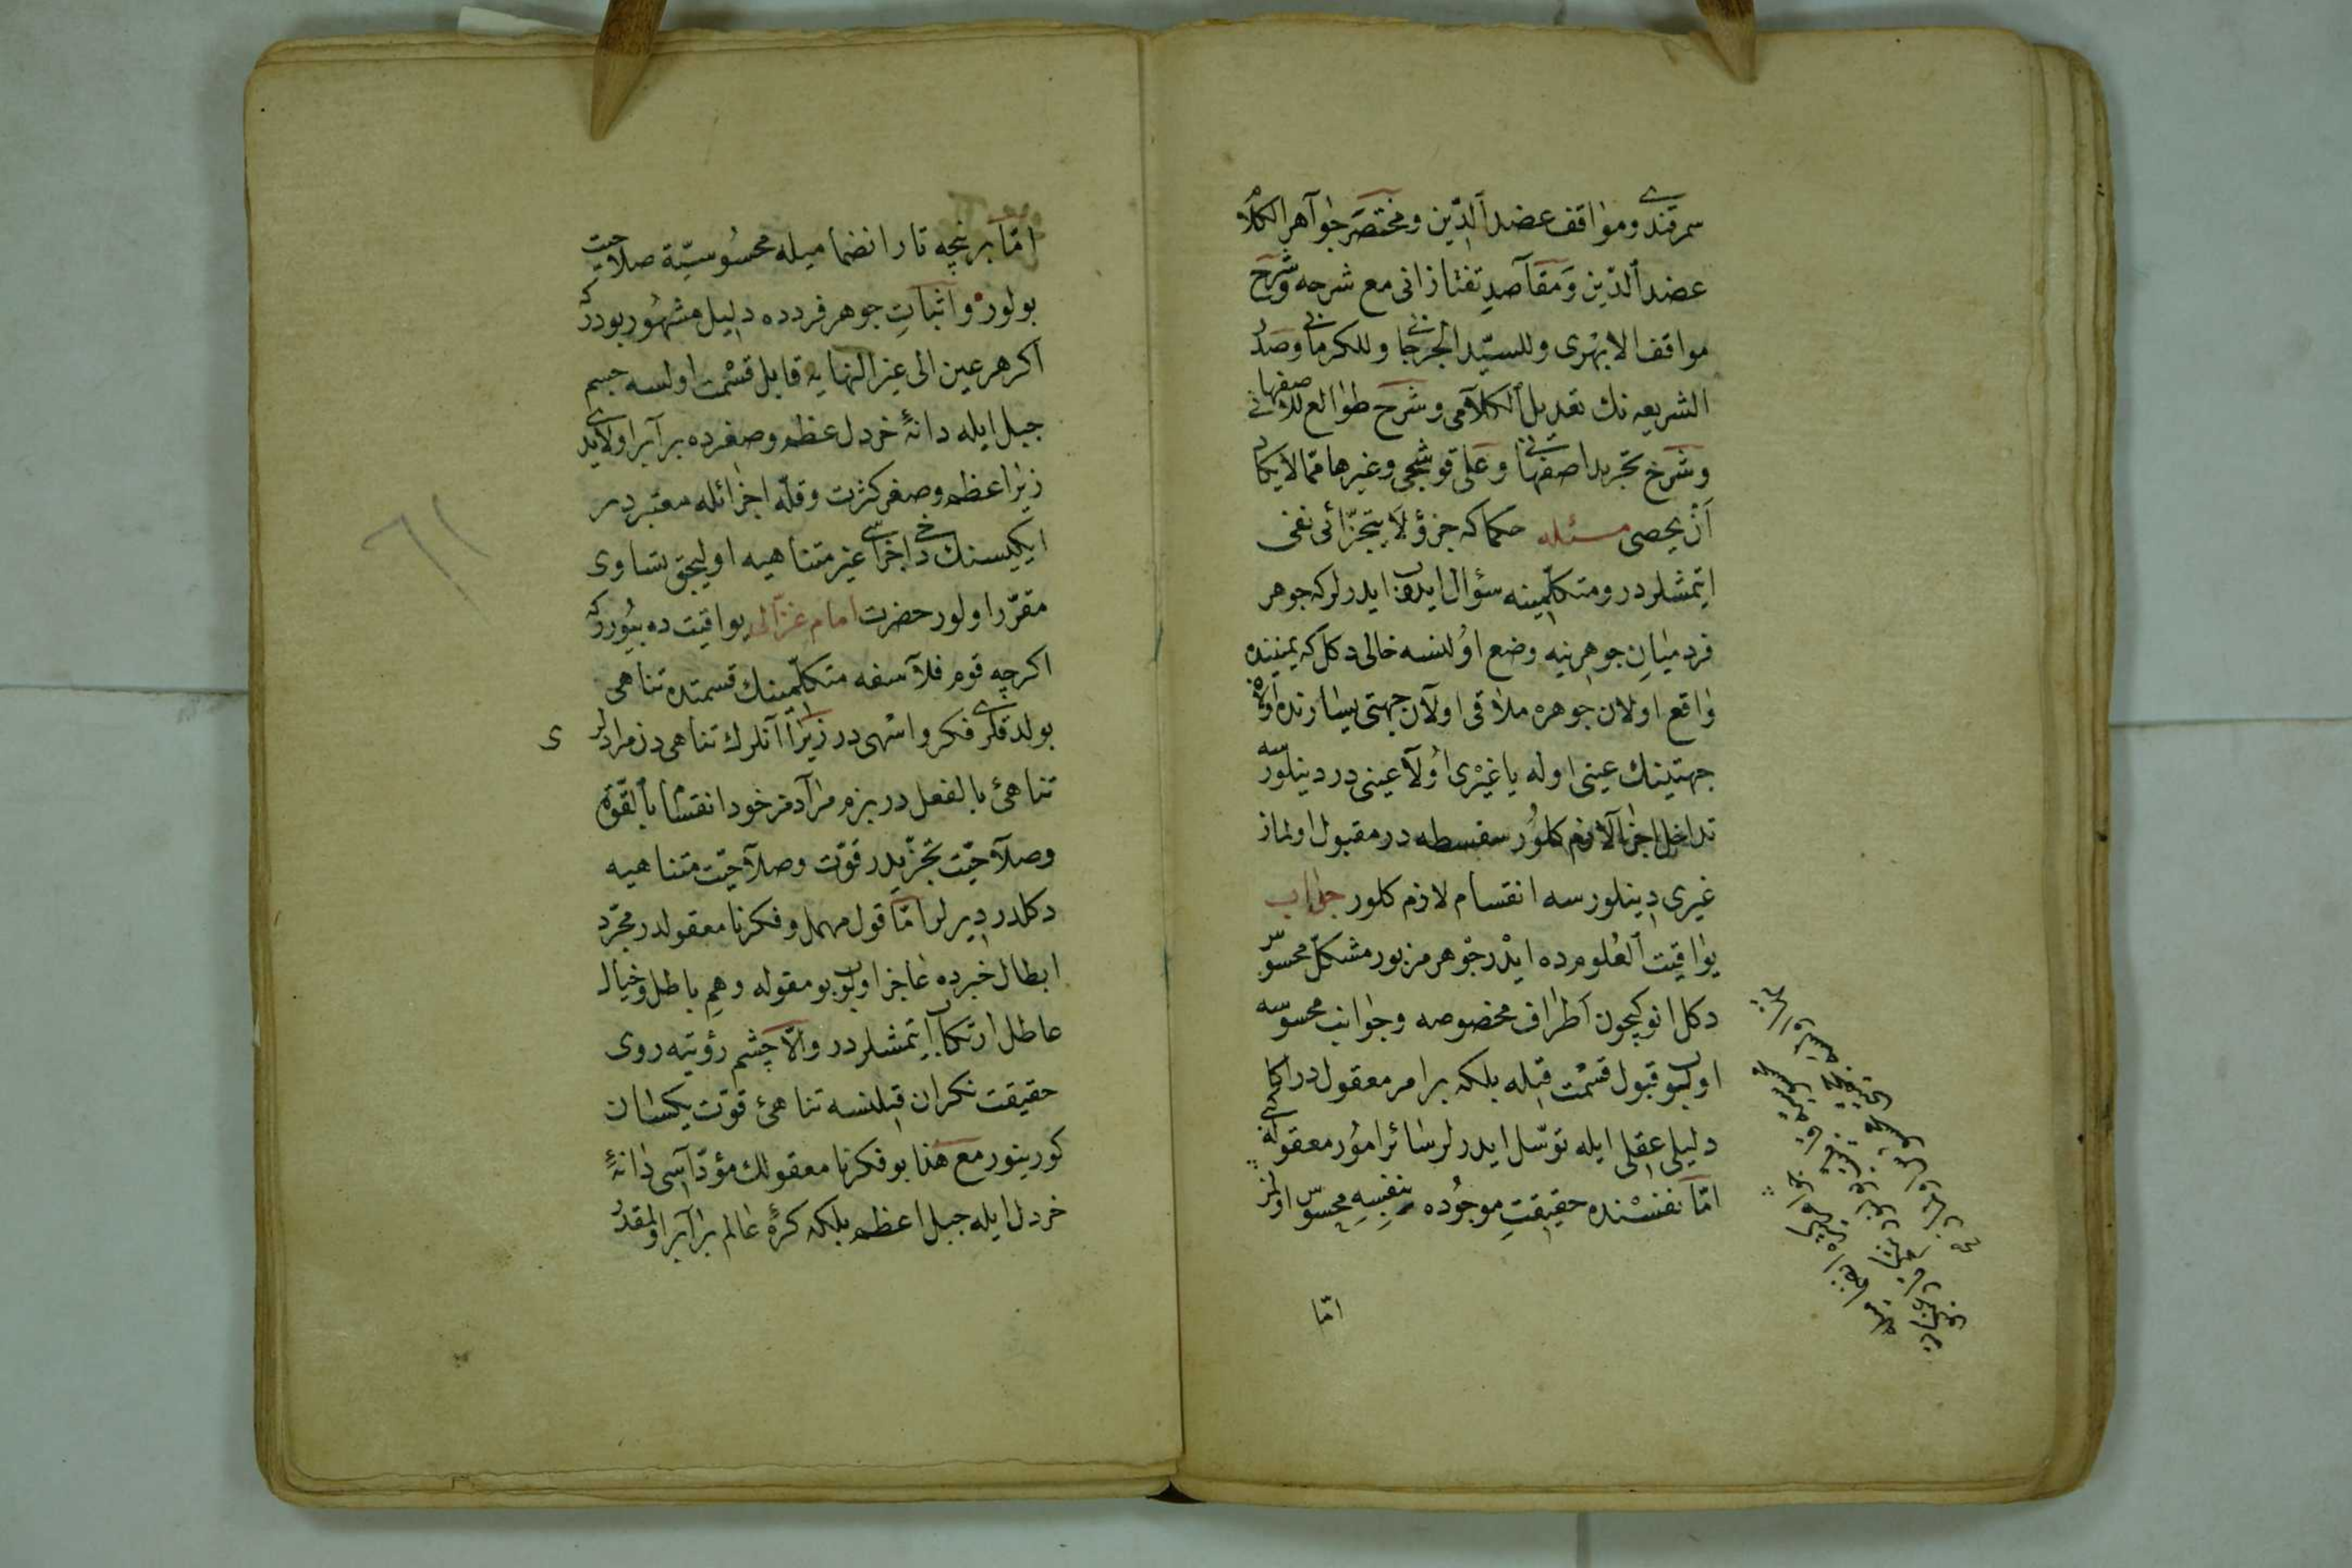 سمرقندى ومواقف عضد الدّين ومختصر جواهر الكلام
عضد الدّين ومقاصدِ تفتازانى مع شرحه وشرح
مواقف الابهرى وللسيّد الجرجانى وللكرمانى وصدر
الشريعه نك تعديل الكلامى وشرح طوالع للاصفهانى
وشرح تجريد اصفهانى وعلى قوشجى وغيرها ممّا لا يكاد
أن يحصى مسئله حكما كه جزؤ لا يتجزّائى نفى
ايتمشلردر ومتكلّمينه سؤال ايدوب ايدرلر كه جوهر
فرد ميانِ جوهرينه وضع اولنسه خالى دكل كه يمينده
واقع اولان جوهره ملاقى اولان جهتى يسارنده اولان
جهتينك عينى اوله يا غيرى اولا عينى در دينلورسه
تداخل اجزا لازم كلور سفسطه در مقبول اولماز
غيرى دينلورسه انقسام لازم كلور جواب
يواقيت العلومده ايدر جوهر مزبور مشكّل محسوس
دكل انوكيچون اطراف مخصوصه وجوانب محسوسه
اولوب قبول قسمت قيله بلكه بر امر معقول در اكا
دليلى عقلى ايله توسّل ايدرلر سائر امور معقوله كبى
امّا نفسنده حقيقتِ موجوده بنفسهِ محسوس اولمز
امّا
امّا برنچه تار انضماميله محسوسيّة صلاحيت
بولور واثباتِ جوهر فردده دليل مشهور بودركه
اكر هر عين الى غير النهايه قابل قسمت اولسه جسم
جبل ايله دانۀ خردل عظم وصغرده برابر اولايدى
زيرا عظم وصغر كثرت وقلّه اجزائله معتبردر
ايكيسنك دخى اجزاسى غير متناهيه اوليجق تساوى
مقرّر اولور حضرت امام غزّالى يواقيت ده بيوررکه
اكرچه قوم فلاسفه متكلّمينك قسمتده تناهى
بولدقلرى فكر واسهى در زيرا آنلرك تناهى دن مرادلرى
تناهئ بالفعل در بزم مرادمز خود انقسام بالقوّة
وصلاحيّت تجزّيدر قوّت وصلاحيّت متناهيه
دكلدر ديرلر امّا قول مهمل وفكر نا معقولدر مجرّد
ابطال خبرده عاجز اولوب بو مقوله وهمِ باطل وخيال
عاطل ارتكاب ايتمشلردر والّا چشم رؤيته روى
حقيقت نكران قيلنسه تناهئ قوّت يكسان
كورينور مع هذا بو فكر نا معقولك مؤدّاسى دانۀ
خردل ايله جبل اعظم بلكه كرۀ عالم برابر اولمقدر